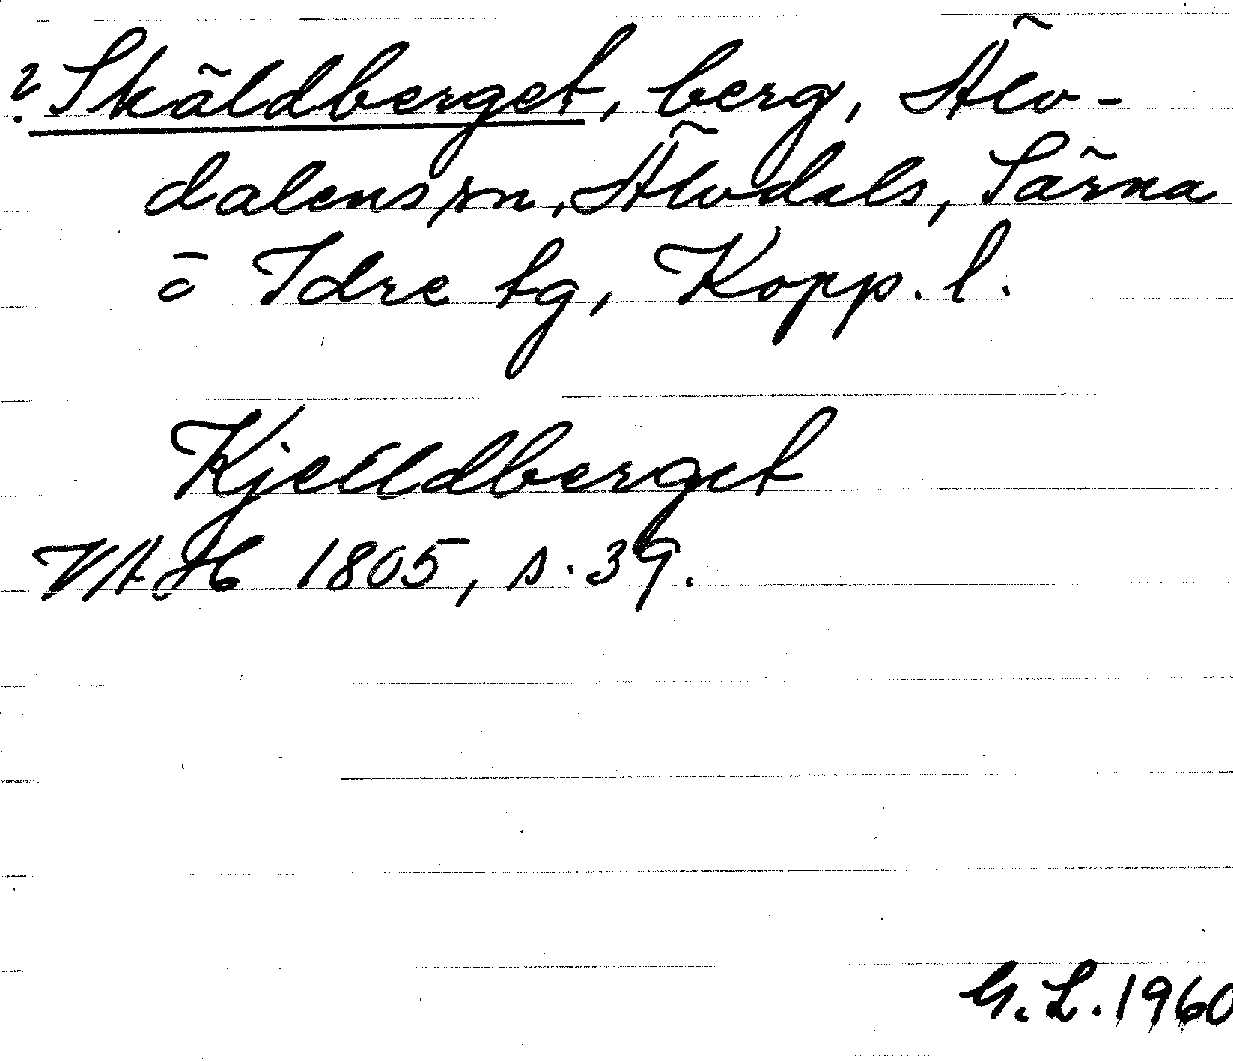 ? Skäldberget, berg, Älv-
dalens sn, Älvdals, Särna
o Idre tg, Kopp. l.
Kjelldberget
VAH 1805, s. 39.
G. L. 1960